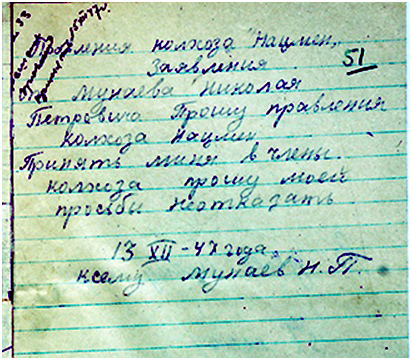 Провления колхоза "Нацмен"
Заявления
51
Мунаева Николая
Петровича Прошу правления
колхоза нацмен
Принять миня в члены.
колхоза прошу моей
просьбы неотказать
13 XII - 47 года
ксему Мунаев Н.П.